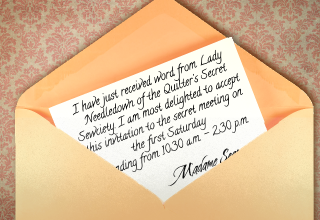 I have just received word from Lady
Needledown of the Quilter's Secret
Sewciety. I am most delighted to accept
this invitation to the secret meeting on
the first Saturday
from 10.30 am - 2.30 p.m
Madame